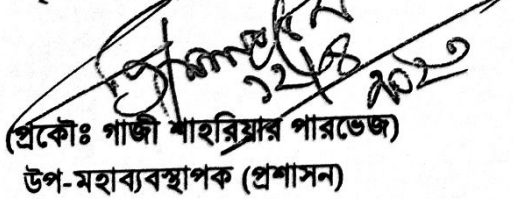 (প্রকৌঃ গাজী শাহরিয়ার পারভেজ)
উপ-মহাব্যবস্থাপক (প্রশাসন)